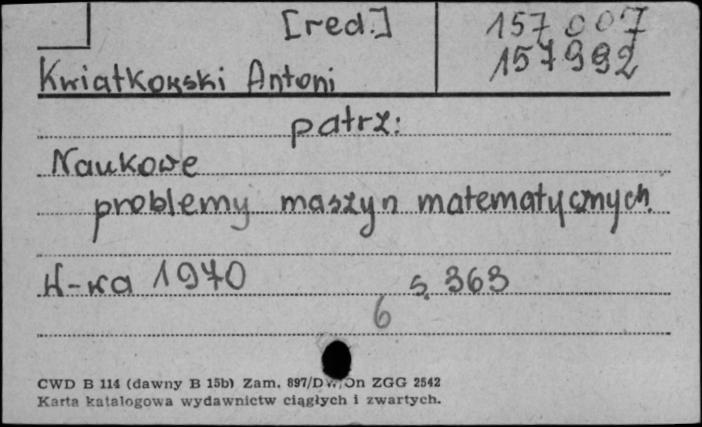 [red.] 157007
Kwiatkowski Antoni 157992
patrz:
Naukowe
problemy maszyn matematycznych.
W-wa 1970 s. 363
6
CWD B 114 (dawny B 15b) Zam. 897/DW/On ZGG 2542
Karta katalogowa wydawnictw ciągłych i zwartych.